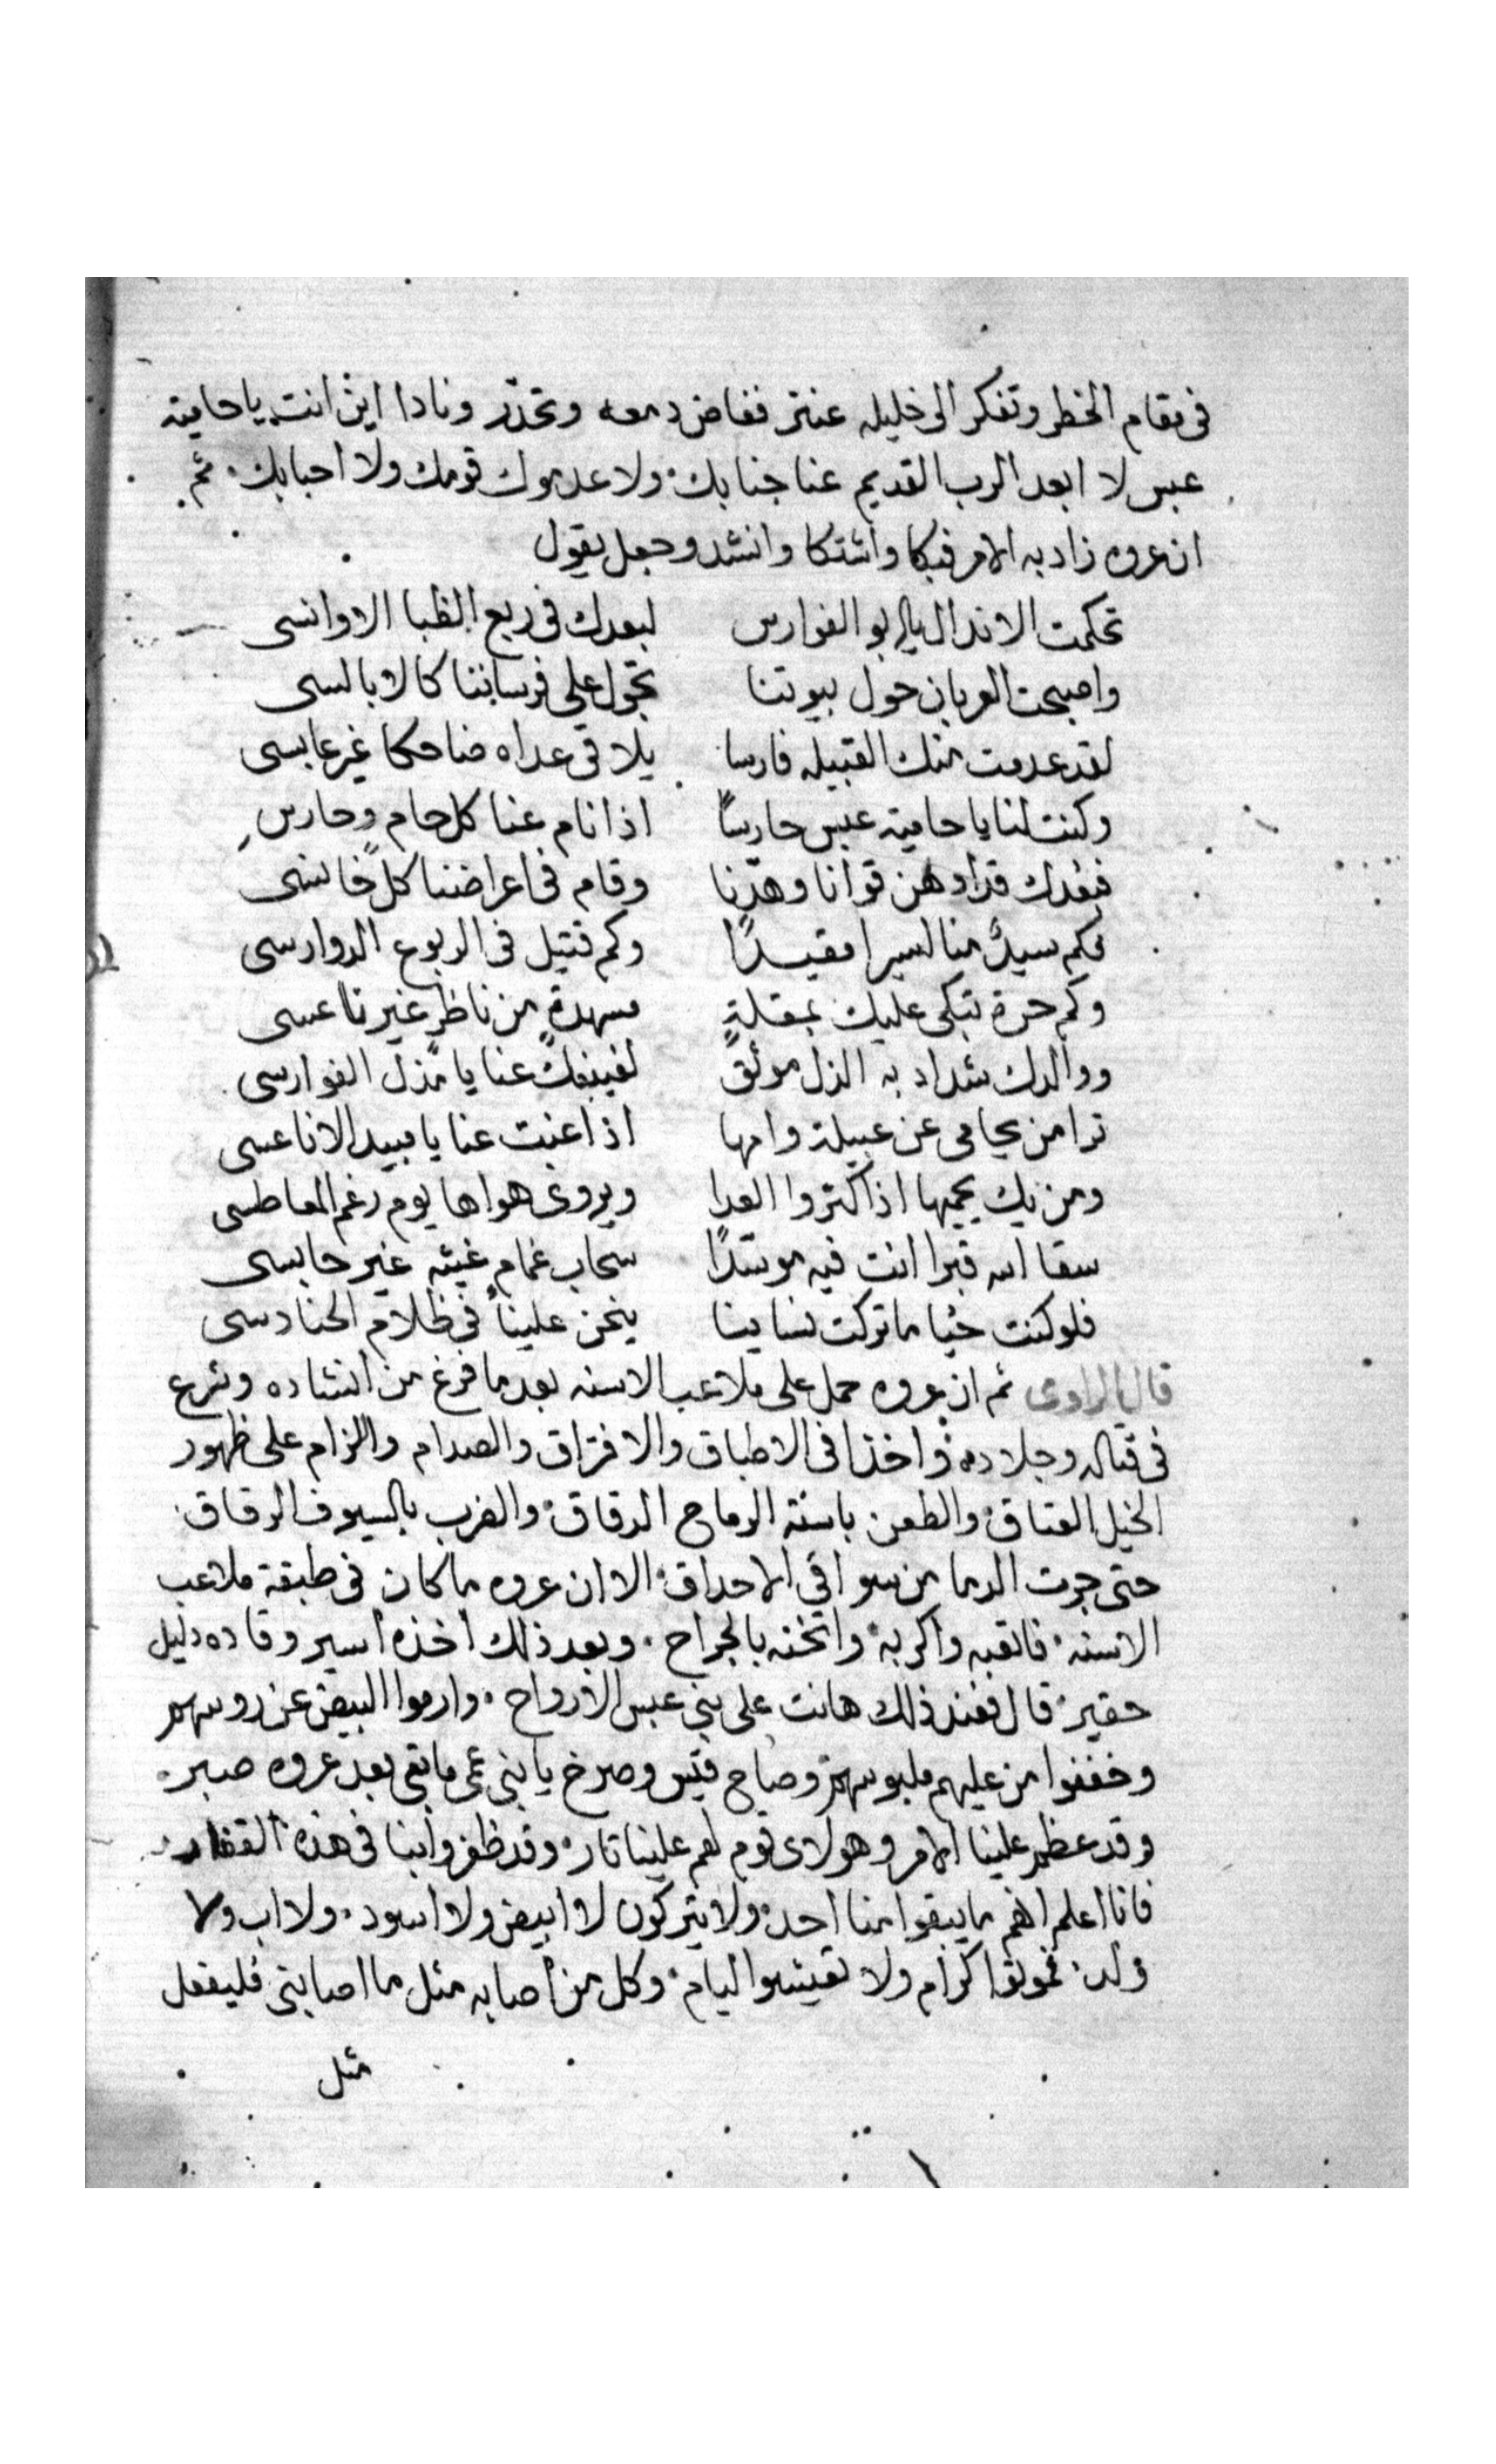 فى مقام الخطر وتفكر الى خليله عنتر ففاض دمعه وتحدّر ونادا اين انت يا حامية
عبس لا ابعد الرب القديم عنا جنابك ولا عدموك قومك ولا احبابك ثم
ان عروه زاد به الامر فبكا واشتكا وانشد وجعل يقول
تحكمت الاندال يابو الفوارس لبعدك فى ربع الظبا الاوانسى
واصبحت العربان حول بيوتنا تجول على فرساننا كالابالسى
لقد عدمت منك القبيله فارسا يلاقى عداه ضاحكا غير عابسى
وكنت لنا يا حامية عبس حارساً اذا نام عنا كل حام وحارس
ففقدك قد اوهن قوانا وهدّنا وقام فى اعراضنا كل خانسى
فكم سيدٌ منا اسيرا مقيداً وكم قتيل فى الربوع الدوارسى
وكم حرة تبكى عليك بمقلةٍ مسهدةٍ من ناظرٍ غير ناعسى
ووالدك شداد به الذل موثق لغيبتك عنا يا مذل الفوارسى
ترا من يحامى عن عبيلة وامها اذا غبت عنا يا مبيد الاناعسى
ومن يك يحميها اذا كتروا العدا ويروى هواها يوم رغم المعاطسى
سقا الله قبرا انت فيه موسّداً سحاب غمام غيثه غير حابسى
فلو كنت حيا ما تركت نساينا ينحن علينا فى ظلام الحنادسى
قال الراوى ثم ان عروه حمل على ملاعب الاسنه بعد ما فرغ من انشاده وشرع
فى قتاله وجلاده واخذا فى الاطباق والافتراق والصدام والزام على ظهور
الخيل العتاق والطعن باسنة الرماح الدقاق والضرب بالسيوف الرقاق
حتى جرت الدما من سواقي الاحداق الا ان عروه ما كان فى طبقة ملاعب
الاسنه فاتعبه واكربه واثخنه بالجراح وبعد ذلك اخذه اسير وقاده دليل
حقير قال فعند ذلك هانت على بني عبس الارواح وارموا البيض عن روسهم
وخففوا من عليهم ملبوسهم وصاح قيس وصرخ يا بني عمى ما بقى بعد عروه صبر
وقد عظم علينا الامر وهولاى قوم لهم علينا تار وقد ظفروا بنا فى هذه القفار
فانا اعلم انهم ما يبقوا منا احد ولا يتركون لا ابيض ولا اسود ولا اب ولا
ولد فموتوا كرام ولا تعيشوا ليام وكل من اصابه مثل ما اصابني فليفعل
مثل